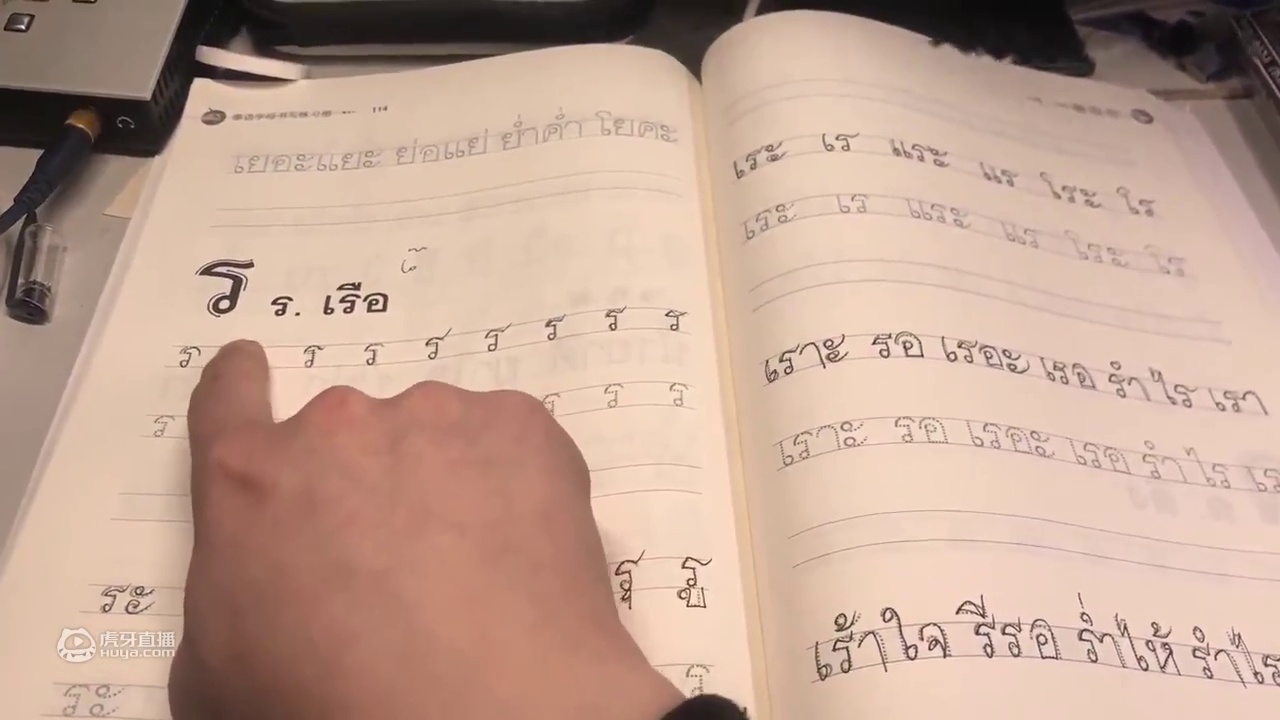 泰语字母书写练习册 114
เยอะแยะ ย่อแย่ ย่ำค่ำ โยคะ
ร ร. เรือ
ร ร ร ร ร ร ร ร
ร ร ร ร
ระ รุ รู
ระ
เระ เร แระ แร โระ โร
เระ เร แระ แร โระ โร
เราะ รอ เรอะ เรอ รำ ไร เรา
เราะ รอ เรอะ เรอ รำ ไร
เร้าใจ รีรอ ร่ำไห้ รำไร
虎牙直播
Huya.com